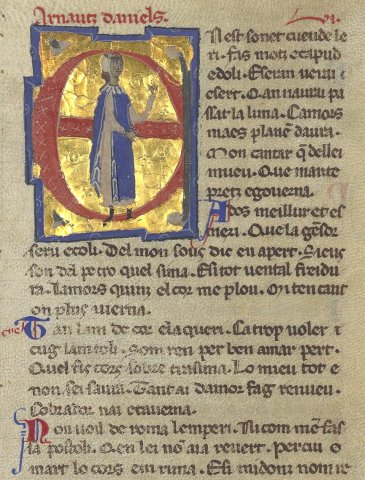 Arnautz daniels.
EN est sonet cuende le
ri. fas motz et capud
e doli. Eseran uerai i
esert. Oan naurai pa
ssat la luma. Camors
maes planem daura.
Mon cantar q̄ dellei
mueu. Que mante
pretz egouerna.
Apos meillur et es
meri. Que la gēsor
serui ecoli. Del mon sous dic en apert. Sieus
son dal petro quel sima. Esitot uental freidu
ra. Lamors quinz el cor me plou. Onten cans
on plus uierna.
Tan lam de cor elaqueri. Catrop uoler
cug lam toli. Som ren per ben amar pert.
Quel sieus cors sobre tirasima. Lo mieu tot e
non sei saura. Tant ai damor fag renueu.
Cobrador nai etauerna.
No uoil de roma lemperi. Ni com mē fas
la postoli. Q en lei no aia reuert. Per cui o
mart lo cors em rima. Esi midonz nom re